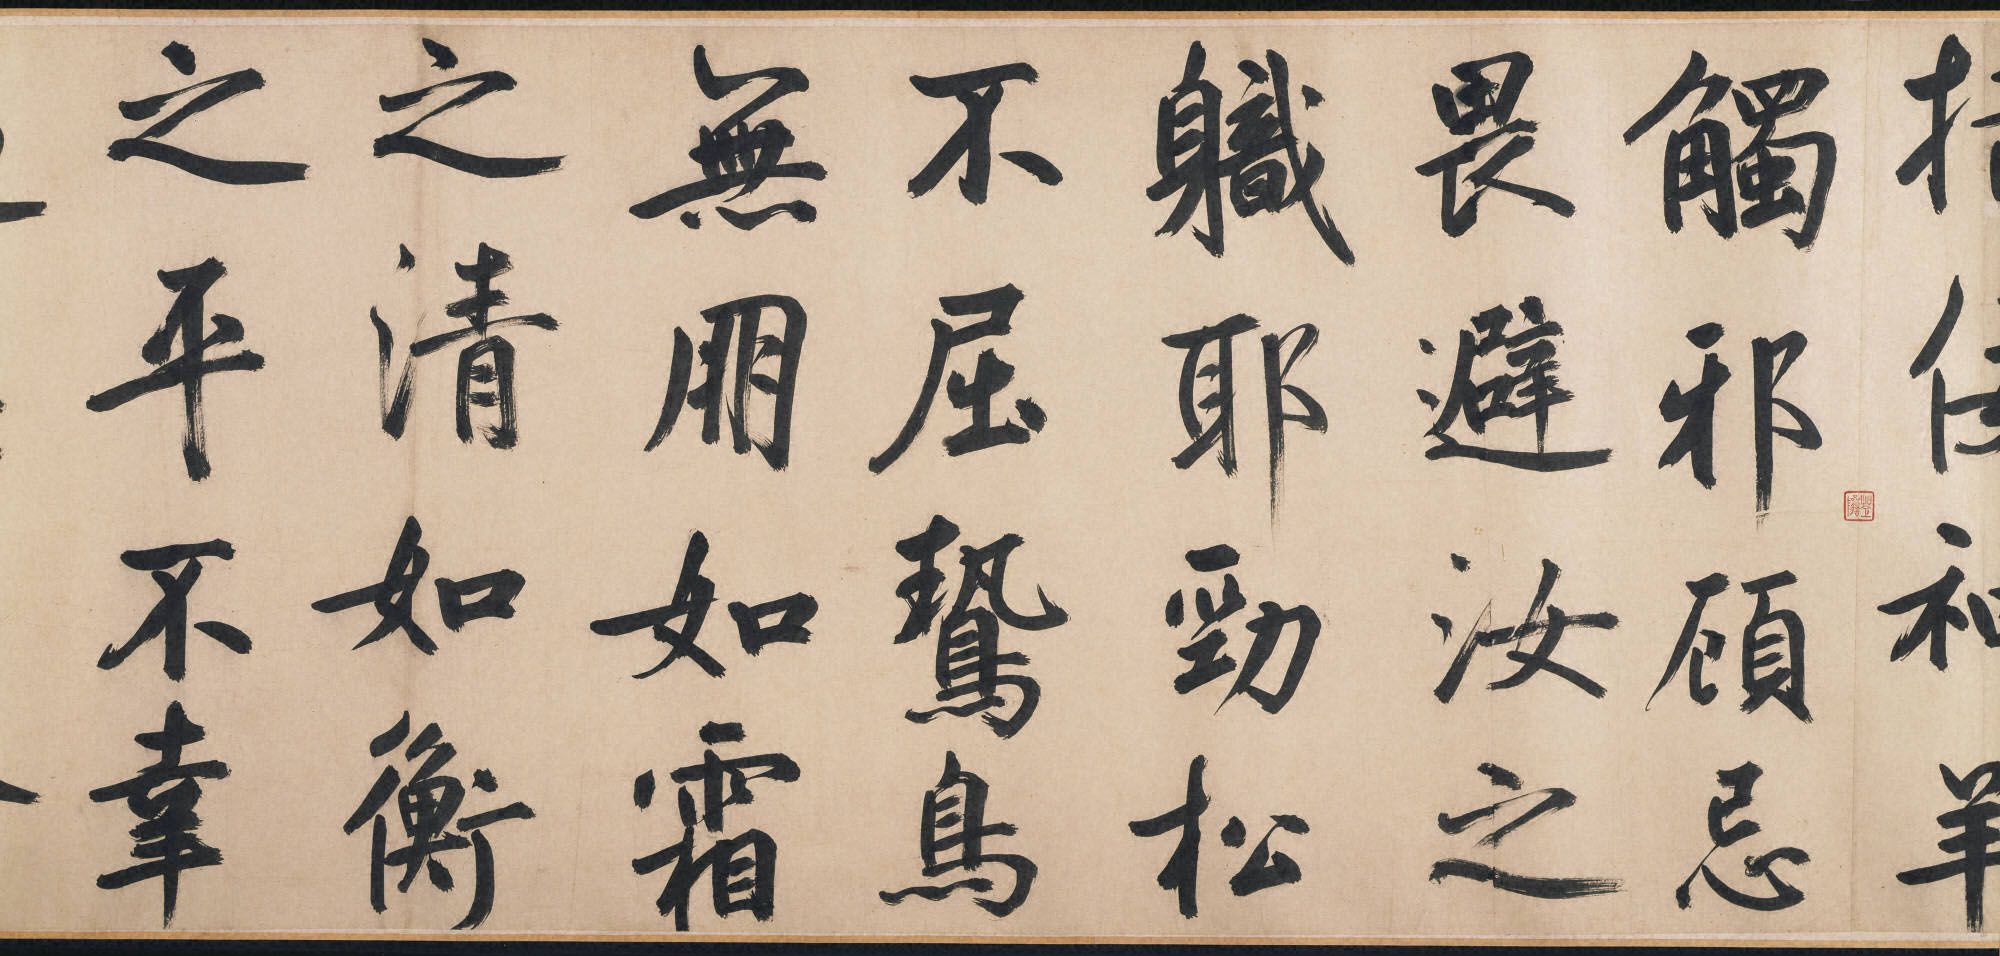 指佞神羊
觸邪顧忌
畏避汝之
職耶勁松
不屈鷙鳥
無朋如霜
之清如衡
之平不幸